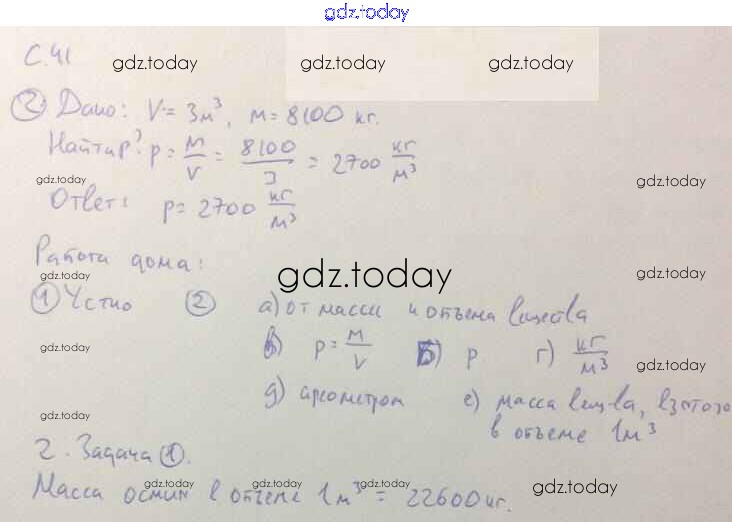 gdz.today
С.41
gdz.today gdz.today gdz.today
② Дано: V = 3м³, м = 8100 кг.
Найти ρ? ρ = м/V = 8100/3 = 2700 кг/м³
gdz.today gdz.today
Ответ: ρ = 2700 кг/м³
Работа дома:
gdz.today gdz.today gdz.today
① Устно ② а) от массы и объема вещества
в) ρ = м/V б) ρ г) кг/м³
gdz.today gdz.today
д) ареометром е) масса вещ-ва, взятого
gdz.today
в объеме 1м³
2. Задача ①.
Масса осмия в объеме 1м³ = 22600 кг.
gdz.today gdz.today gdz.today gdz.today